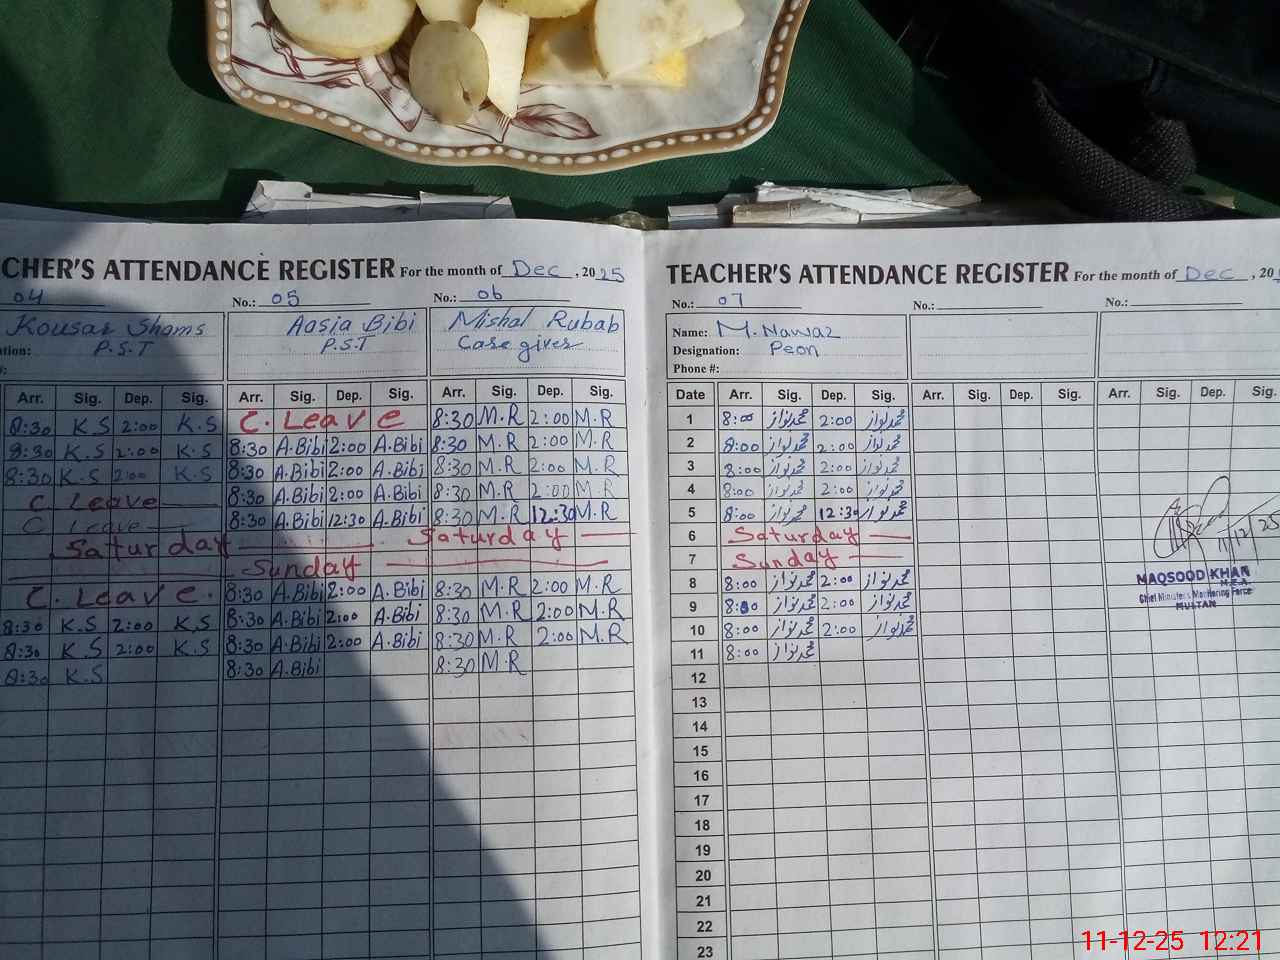 CHER'S ATTENDANCE REGISTER For the month of Dec , 2025
04 No.: 05 No.: 06
Kousar Shams Aasia Bibi Mishal Rubab
ation: P.S.T P.S.T Care giver
Arr. Sig. Dep. Sig. Arr. Sig. Dep. Sig. Arr. Sig. Dep. Sig.
8:30 K.S 2:00 K.S C. Leave 8:30 M.R 2:00 M.R
8:30 K.S 2:00 K.S 8:30 A.Bibi 2:00 A.Bibi 8:30 M.R 2:00 M.R
8:30 K.S 2:00 K.S 8:30 A.Bibi 2:00 A.Bibi 8:30 M.R 2:00 M.R
C. Leave 8:30 A.Bibi 2:00 A.Bibi 8:30 M.R 2:00 M.R
C. Leave 8:30 A.Bibi 12:30 A.Bibi 8:30 M.R 12:30 M.R
Saturday Saturday
Sunday
C. Leave. 8:30 A.Bibi 2:00 A.Bibi 8:30 M.R 2:00 M.R
8:30 K.S 2:00 K.S 8:30 A.Bibi 2:00 A.Bibi 8:30 M.R 2:00 M.R
8:30 K.S 2:00 K.S 8:30 A.Bibi 2:00 A.Bibi 8:30 M.R 2:00 M.R
8:30 K.S 8:30 A.Bibi 8:30 M.R
TEACHER'S ATTENDANCE REGISTER For the month of Dec , 20
No.: 07 No.: No.:
Name: M. Nawaz
Designation: Peon
Phone #:
Date Arr. Sig. Dep. Sig. Arr. Sig. Dep. Sig. Arr. Sig. Dep. Sig.
1 8:00 محمد نواز 2:00 محمد نواز
2 8:00 محمد نواز 2:00 محمد نواز
3 8:00 محمد نواز 2:00 محمد نواز
4 8:00 محمد نواز 2:00 محمد نواز
5 8:00 محمد نواز 12:30 محمد نواز
6 Saturday
7 Sunday
8 8:00 محمد نواز 2:00 محمد نواز
9 8:00 محمد نواز 2:00 محمد نواز
10 8:00 محمد نواز 2:00 محمد نواز
11 8:00 محمد نواز
12
13
14
15
16
17
18
19
20
21
22
23
11/12/25
MAQSOOD KHAN
M.E.A.
Chief Minister's Monitoring Force
MULTAN
11-12-25 12:21